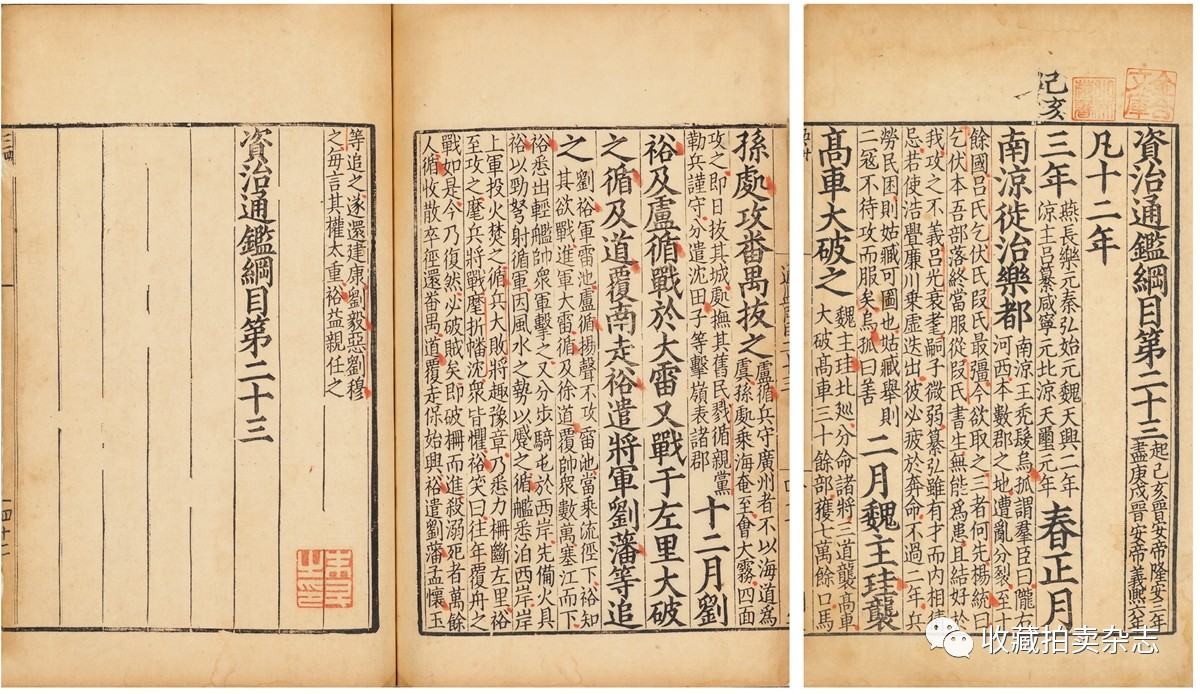 金合文庫
己亥
資治通鑑綱目第二十三
起己亥晉安帝隆安三年
盡庚戌晉安帝義熈六年
凡十二年
三年
燕長樂元秦弘始元魏天興二年
涼主吕纂咸寧元北涼天璽元年
春正月
南涼徙治樂都
南涼王禿髮烏孤謂羣臣曰隴右
河西本數郡之地遭亂分裂至十
餘國吕氏乞伏氏叚氏最彊今欲取之三者何先楊統曰
乞伏本吾部落終當服從叚氏書生無能爲患且結好於
我攻之不義吕光衰耄嗣子微弱纂弘雖有才而内相猜
忌若使浩亹廉川乗虛迭出彼必疲於奔命不過二年兵
勞民困則姑臧可圖也姑臧舉則
二冦不待攻而服矣烏孤曰善
二月魏主珪襲
髙車大破之
魏主珪北廵分命諸將三道襲髙車
大破髙車三十餘部獲七萬餘口馬
孫處攻番禺拔之
盧循兵守廣州者不以海道爲
虞孫處乘海奄至會大霧四面
攻之即日拔其城處撫其舊民戮循親黨
勒兵謹守分遣沈田子等擊嶺表諸郡
十二月劉
裕及盧循戰於大雷又戰于左里大破
之循及道覆南走裕遣將軍劉藩等追
之
劉裕軍雷池盧循揚聲不攻雷池當乘流徑下裕知
其欲戰進軍大雷循及徐道覆帥衆數萬塞江而下
裕悉出輕艦帥衆軍擊之又分步騎屯於西岸先備火具
裕以勁弩射循軍因風水之勢以蹙之循艦悉泊西岸岸
上軍投火焚之循兵大敗將趣豫章乃悉力柵斷左里裕
至攻之麾兵將戰麾折幡沈衆皆懼裕笑曰往年覆舟之
戰如是今乃復然必破賊矣即破柵而進殺溺死者萬餘
人循收散卒徑還番禺道覆走保始興裕遣劉藩孟懷玉
等追之遂還建康劉毅惡劉穆
之毎言其權太重裕益親任之
資治通鑑綱目第二十三
四十二
收藏拍卖杂志